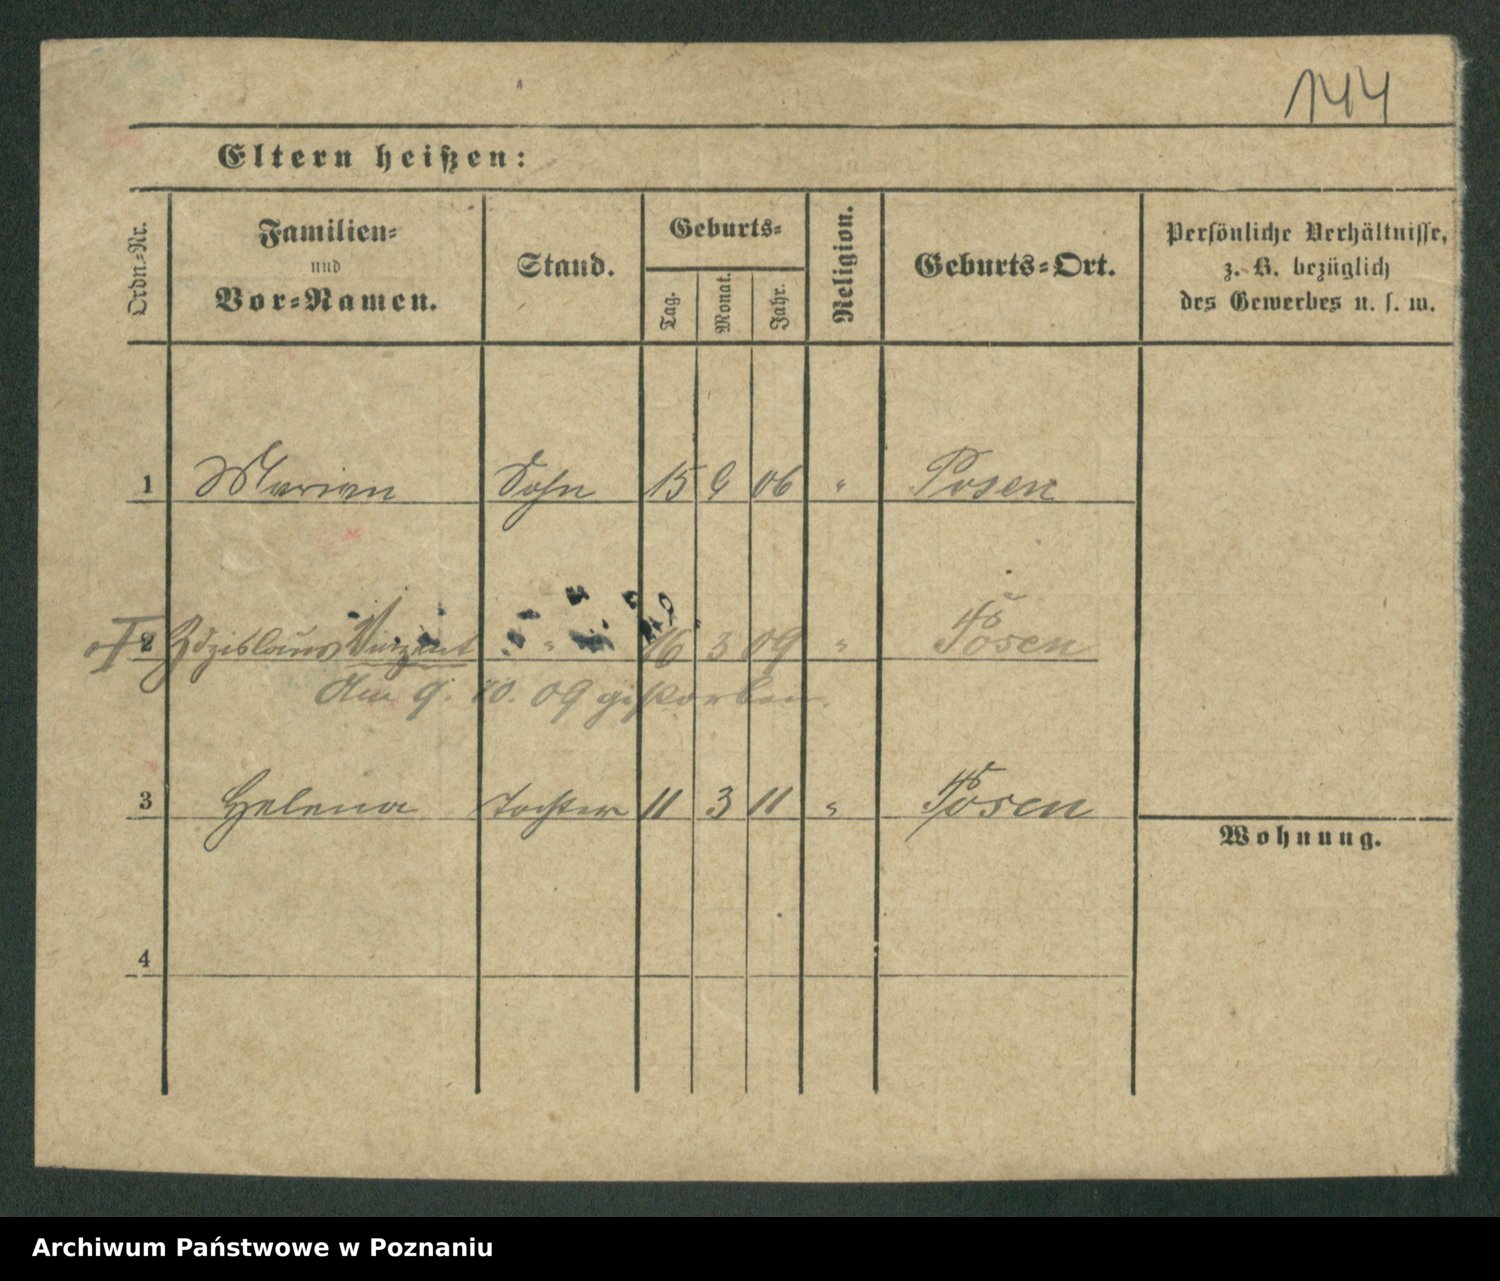 144
Eltern heißen:
Ordn.-Nr.
Familien-
und
Vor-Namen.
Stand.
Geburts-
Tag.
Monat.
Jahr.
Religion.
Geburts-Ort.
Persönliche Verhältnisse,
z. B. bezüglich
des Gewerbes u. s. w.
1 Marian Sohn 15 9 06 " Posen
2 Zdzislaus Vinzent " 16 3 09 " Posen
Am 9. 10. 09 gestorben.
3 Helena Tochter 11 3 11 " Posen
Wohnung.
4
Archiwum Państwowe w Poznaniu